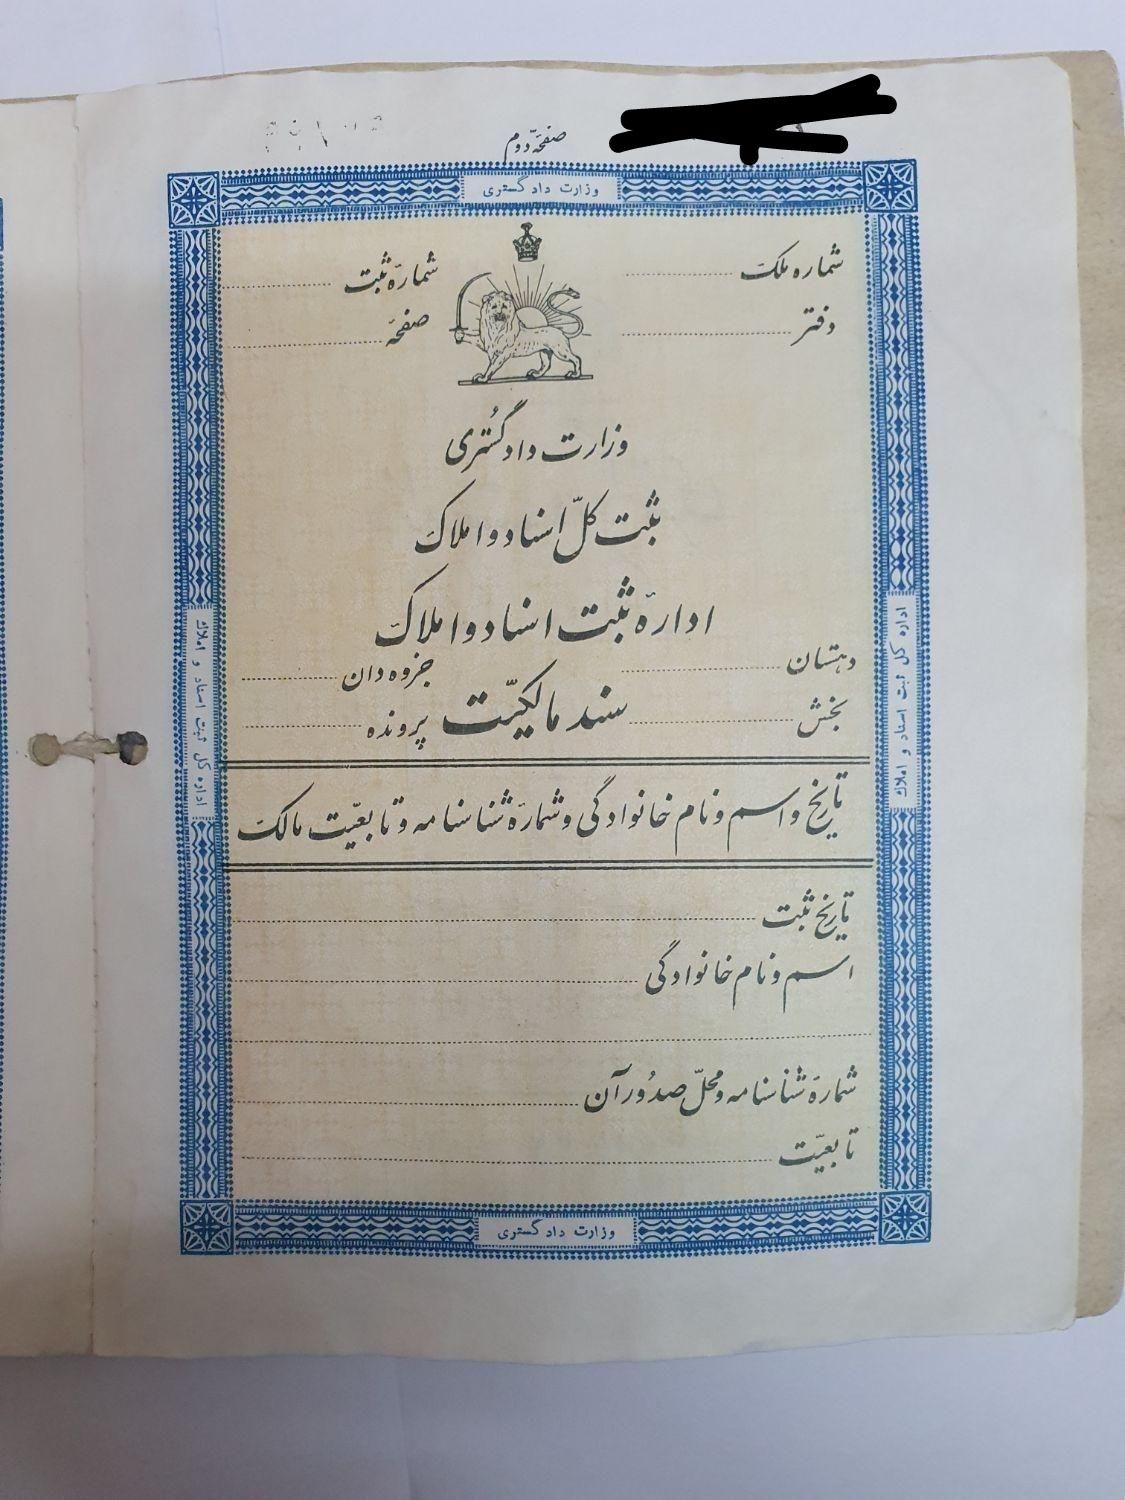 صفحهٔ دوّم
وزارت دادگستری
شماره ملک
شمارهٔ ثبت
دفتر
صفحهٔ
وزارت دادگُستری
ثبت کلّ اسناد و املاک
ادارهٔ ثبت اسناد و املاک
دهستان
جزوه دان
بخش
سند مالکیّت
پرونده
تاریخ و اسم و نام خانوادگی و شمارهٔ شناسنامه و تابعیّت مالک
تاریخ ثبت
اسم و نام خانوادگی
شمارهٔ شناسنامه و محلّ صدُور آن
تابعیّت
وزارت دادگستری
اداره کل ثبت اسناد و املاک
اداره کل ثبت اسناد و املاک